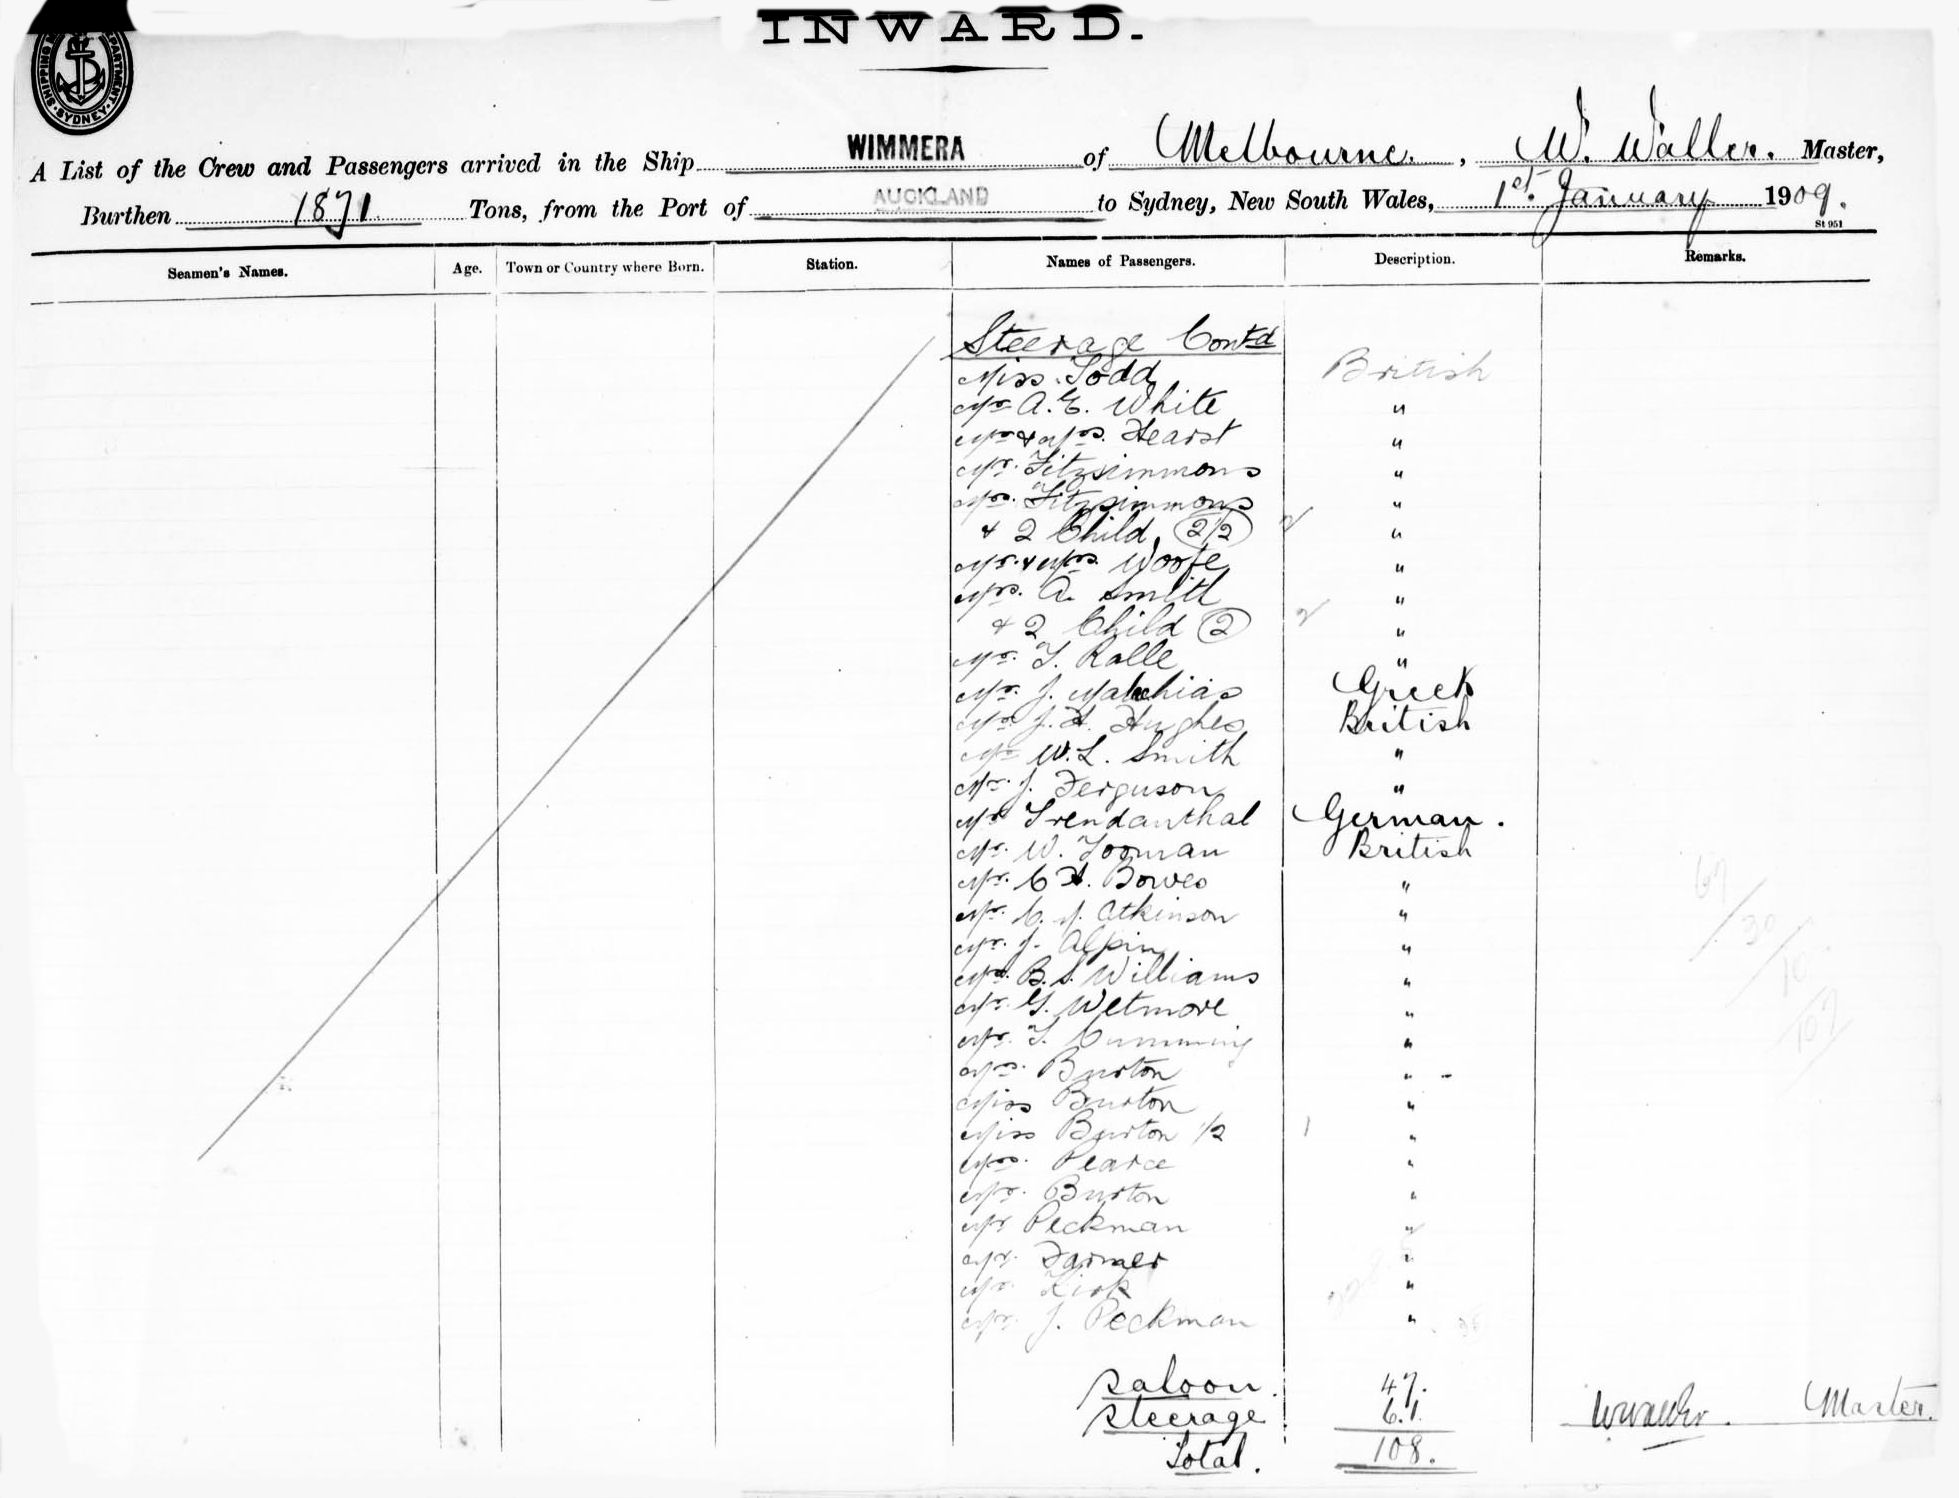 INWARD.
SHIPPING DEPARTMENT. SYDNEY.
A List of the Crew and Passengers arrived in the Ship WIMMERA of Melbourne. , W. Waller. Master,
Burthen 1871 Tons, from the Port of AUCKLAND to Sydney, New South Wales, 1st. January 1909.
St 951
Seamen's Names. Age. Town or Country where Born. Station. Names of Passengers. Description. Remarks.
Steerage Contd
Miss. Todd British
Mr A. E. White "
Mr & Mrs. Hearst "
Mr. Fitzsimmons "
Mrs. Fitzsimmons "
& 2 Child. 2/2 2 "
Mr. & Mrs. Woofe "
Mrs. A. Smith "
& 2 Child 2 2 "
Mr. T. Ralle "
Mr. J. Greek
Mr. J. H. Hughes British
Mr W. L. Smith "
Mr. J. Ferguson "
Mr Trendanthal German.
Mr. W. Tooman British
Mr. C H. Bowes "
Mr. C. J. Atkinson "
Mr. J. Alpin "
Mr. B. S. Williams "
Mr. G. Wetmore "
Mr. T. Cumming "
Mrs. Burton "
Miss Burton "
Miss Burton 1/2 1 "
Mrs. Pearce "
Mr. Burton "
Mr Peckman "
Mr. Farmer "
Mr. Kirk "
Mr. J. Peckman "
67/30/10/107
Saloon. 47.
Steerage 61.
Total. 108.
W Waller. Master.